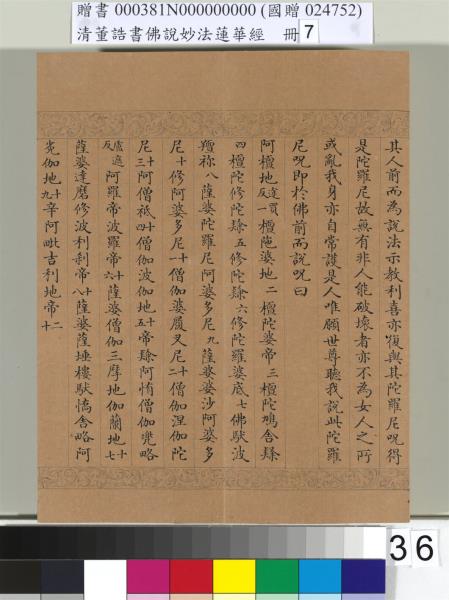 贈書 000381N000000000 (國贈 024752)
清董誥書佛說妙法蓮華經 冊 7
其人前而為說法示教利喜亦復與其陀羅尼呪得
是陀羅尼故無有非人能破壞者亦不為女人之所
惑亂我身亦自常護是人唯願世尊聽我說此陀羅
尼呪即於佛前而說呪曰
阿檀地途賣反一檀陁婆地二檀陀婆帝三檀陀鳩舍隸
四檀陀修陀隸五修陀隸六修陀羅婆底七佛馱波
羶祢八薩婆陀羅尼阿婆多尼九薩婆婆沙阿婆多
尼十修阿婆多尼十一僧伽婆履叉尼十二僧伽涅伽陀
尼十三阿僧祇十四僧伽波伽地十五帝隸阿惰僧伽兠略
盧遮反阿羅帝波羅帝十六薩婆僧伽三摩地伽蘭地十七
薩婆達磨修波利剎帝十八薩婆薩埵樓馱憍舍略阿
㝹伽地十九辛阿毗吉利地帝二十
36